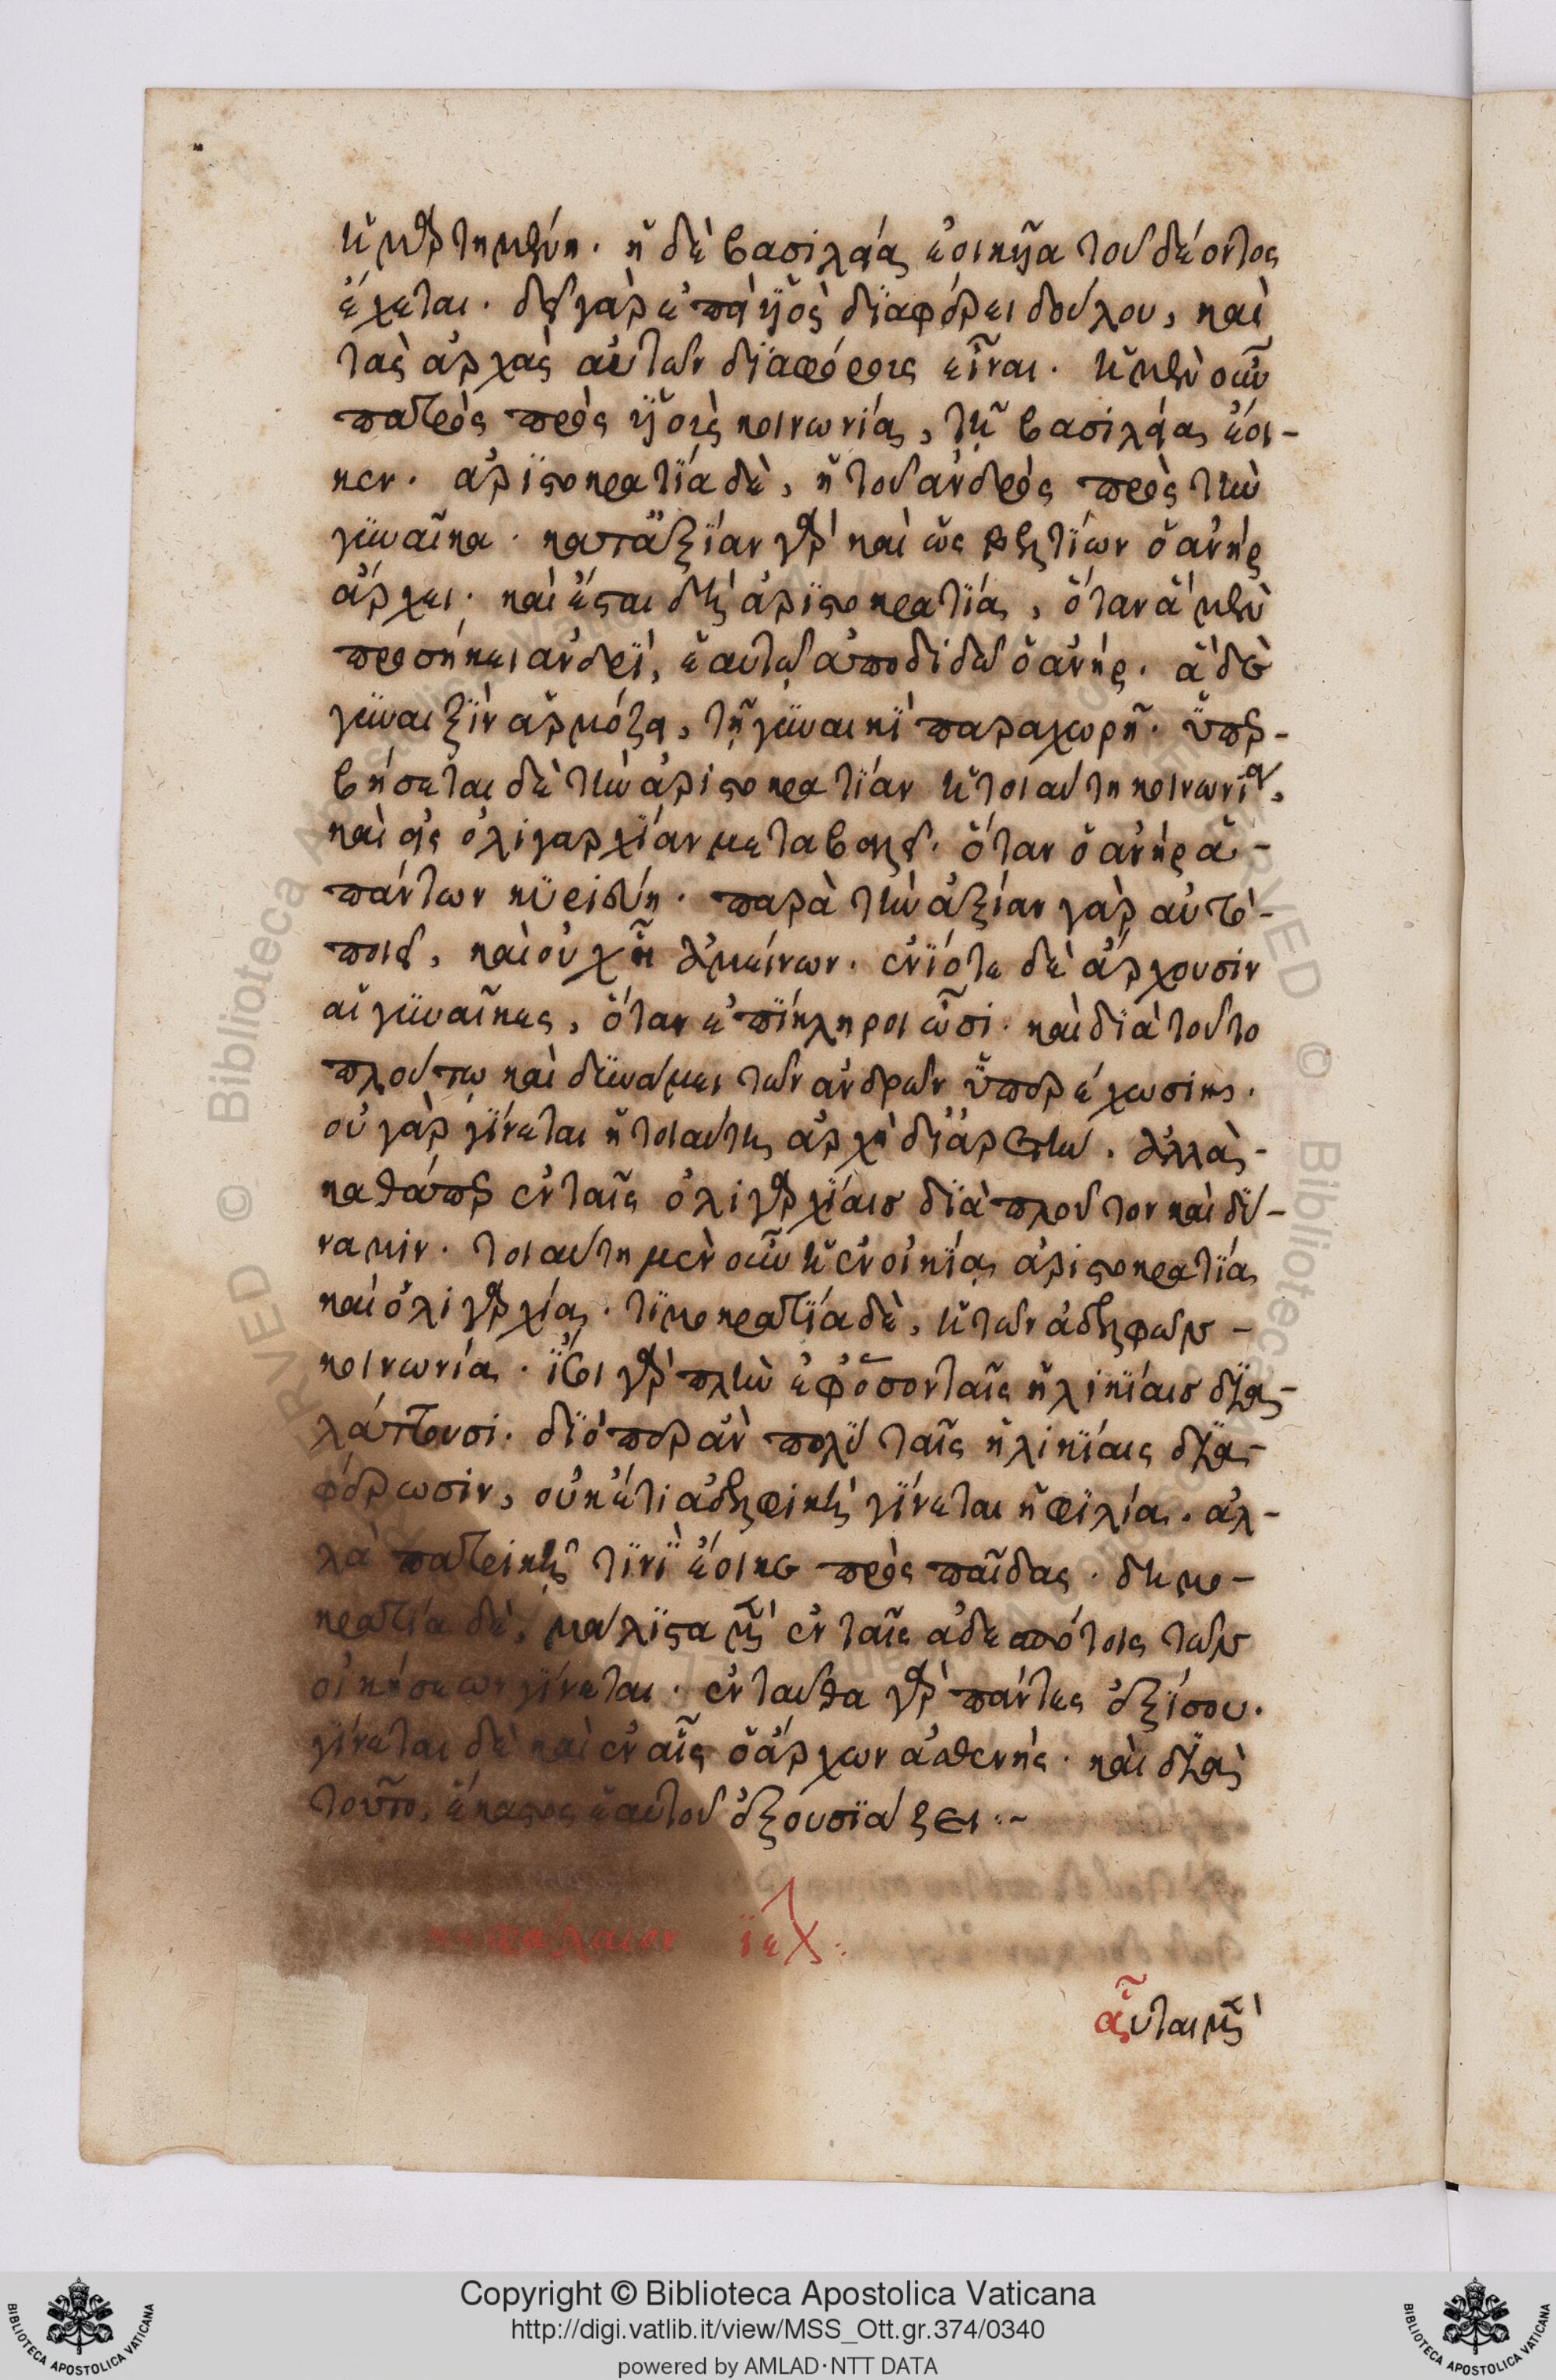 ἡμαρτημένη. ἡ δὲ βασιλεία ἐοικυῖα τοῦ δέοντος
ἔχεται. δεῖ γὰρ ἐπεὶ υἱὸς διαφέρει δούλου, καὶ
τὰς ἀρχὰς αὐτῶν διαφόρους εἶναι. ἡ μὲν οὖν
πατρὸς πρὸς υἱοὺς κοινωνία, τῇ βασιλείᾳ ἔοι-
κεν. ἀριστοκρατία δὲ, ἡ τοῦ ἀνδρὸς πρὸς τὴν
γυναῖκα. κατὰ ἀξίαν γὰρ καὶ ὡς βελτίων ὁ ἀνὴρ
ἄρχει. καὶ ἔσται δὴ ἀριστοκρατία, ὅταν ἃ μὲν
προσήκει ἀνδρὶ, ἑαυτῷ ἀποδιδῷ ὁ ἀνήρ. ἃ δὲ
γυναιξὶν ἁρμόζει, τῇ γυναικὶ παραχωρῇ. ὑπερ-
βήσεται δὲ τὴν ἀριστοκρατίαν ἡ τοιαύτη κοινωνία,
καὶ εἰς ὀλιγαρχίαν μεταβαλεῖ. ὅταν ὁ ἀνὴρ ἁ-
πάντων κυριεύῃ. παρὰ τὴν ἀξίαν γὰρ αὐτὸ
ποιεῖ, καὶ οὐχ ᾗ ἀμείνων. ἐνίοτε δὲ ἄρχουσιν
αἱ γυναῖκες, ὅταν ἐπίκληροι ὦσι. καὶ διὰ τοῦτο
πλούτῳ καὶ δυνάμει τῶν ἀνδρῶν ὑπερέχωσιν.
οὐ γὰρ γίνεται ἡ τοιαύτη ἀρχὴ δι' ἀρετήν. ἀλλὰ
καθάπερ ἐν ταῖς ὀλιγαρχίαις διὰ πλοῦτον καὶ δύ-
ναμιν. τοιαύτη μὲν οὖν ἡ ἐν οἰκίᾳ ἀριστοκρατία
καὶ ὀλιγαρχία. τιμοκρατία δὲ, ἡ τῶν ἀδελφῶν
κοινωνία. ἴσοι γὰρ πλὴν ἐφ' ὅσον ταῖς ἡλικίαις διαλ-
λάττουσι. διόπερ ἂν πολὺ ταῖς ἡλικίαις δια-
φέρωσιν, οὐκέτι ἀδελφικὴ γίνεται ἡ φιλία. ἀλ-
λὰ πατρικῇ τινὶ ἔοικε πρὸς παῖδας. δημο-
κρατία δὲ, μάλιστα μὲν ἐν ταῖς ἀδεσπότοις τῶν
οἰκήσεων γίνεται. ἐνταῦθα γὰρ πάντες ἐξίσου.
γίνεται δὲ καὶ ἐν αἷς ὁ ἄρχων ἀσθενής. καὶ διὰ
τοῦτο, ἕκαστος ἑαυτοῦ ἐξουσιάζει :~
κεφάλαιον ιεον :
αὗται μὲν